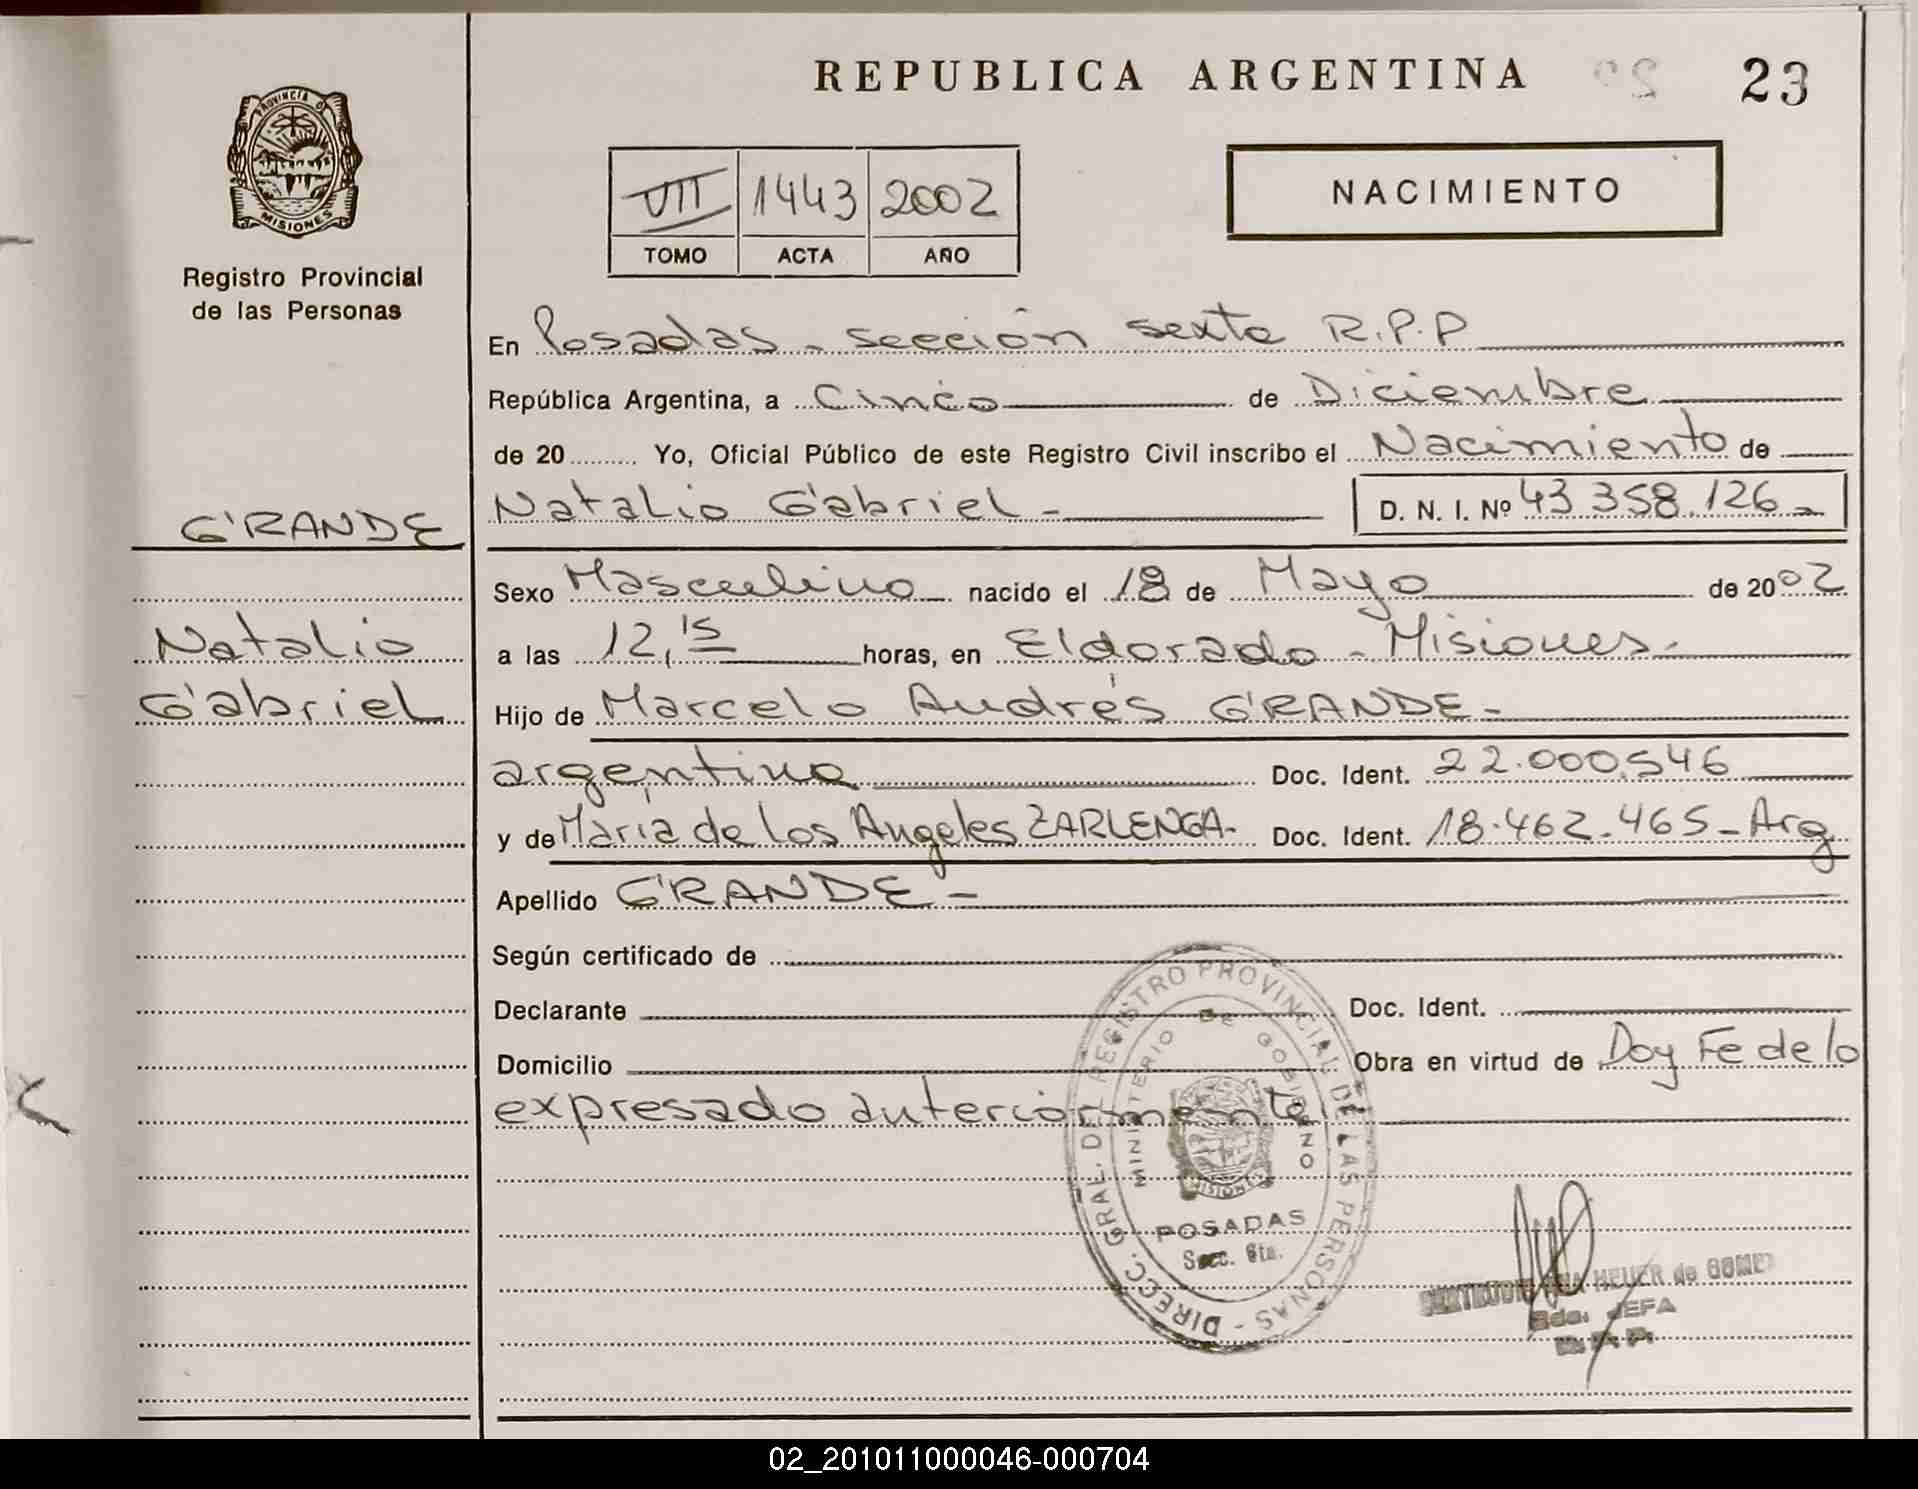 REPUBLICA ARGENTINA 22 23
PROVINCIA DE
MISIONES
Registro Provincial
de las Personas
VII 1443 2002
TOMO ACTA AÑO
NACIMIENTO
En Posadas - sección sexta R.P.P
República Argentina, a Cinco de Diciembre
de 20 Yo, Oficial Público de este Registro Civil inscribo el Nacimiento de
GRANDE
Natalio Gabriel - D. N. I. Nº 43 358.126
Sexo Masculino nacido el 18 de Mayo de 2002
Natalio
a las 12,15 horas, en Eldorado - Misiones.
Gabriel
Hijo de Marcelo Andrés GRANDE -
argentino Doc. Ident. 22.000.546
y de María de los Angeles ZARLENGA - Doc. Ident. 18.462.465 - Arg
Apellido GRANDE -
Según certificado de
Declarante Doc. Ident.
Domicilio Obra en virtud de Doy Fe de lo
expresado anteriormente
DIRECC. GRAL. DEL REGISTRO PROVINCIAL DE LAS PERSONAS -
MINISTERIO DE GOBIERNO
MISIONES
POSADAS
Secc. 6ta.
HEUER de GOMEZ
2da. JEFA
R. P. P.
02_201011000046-000704